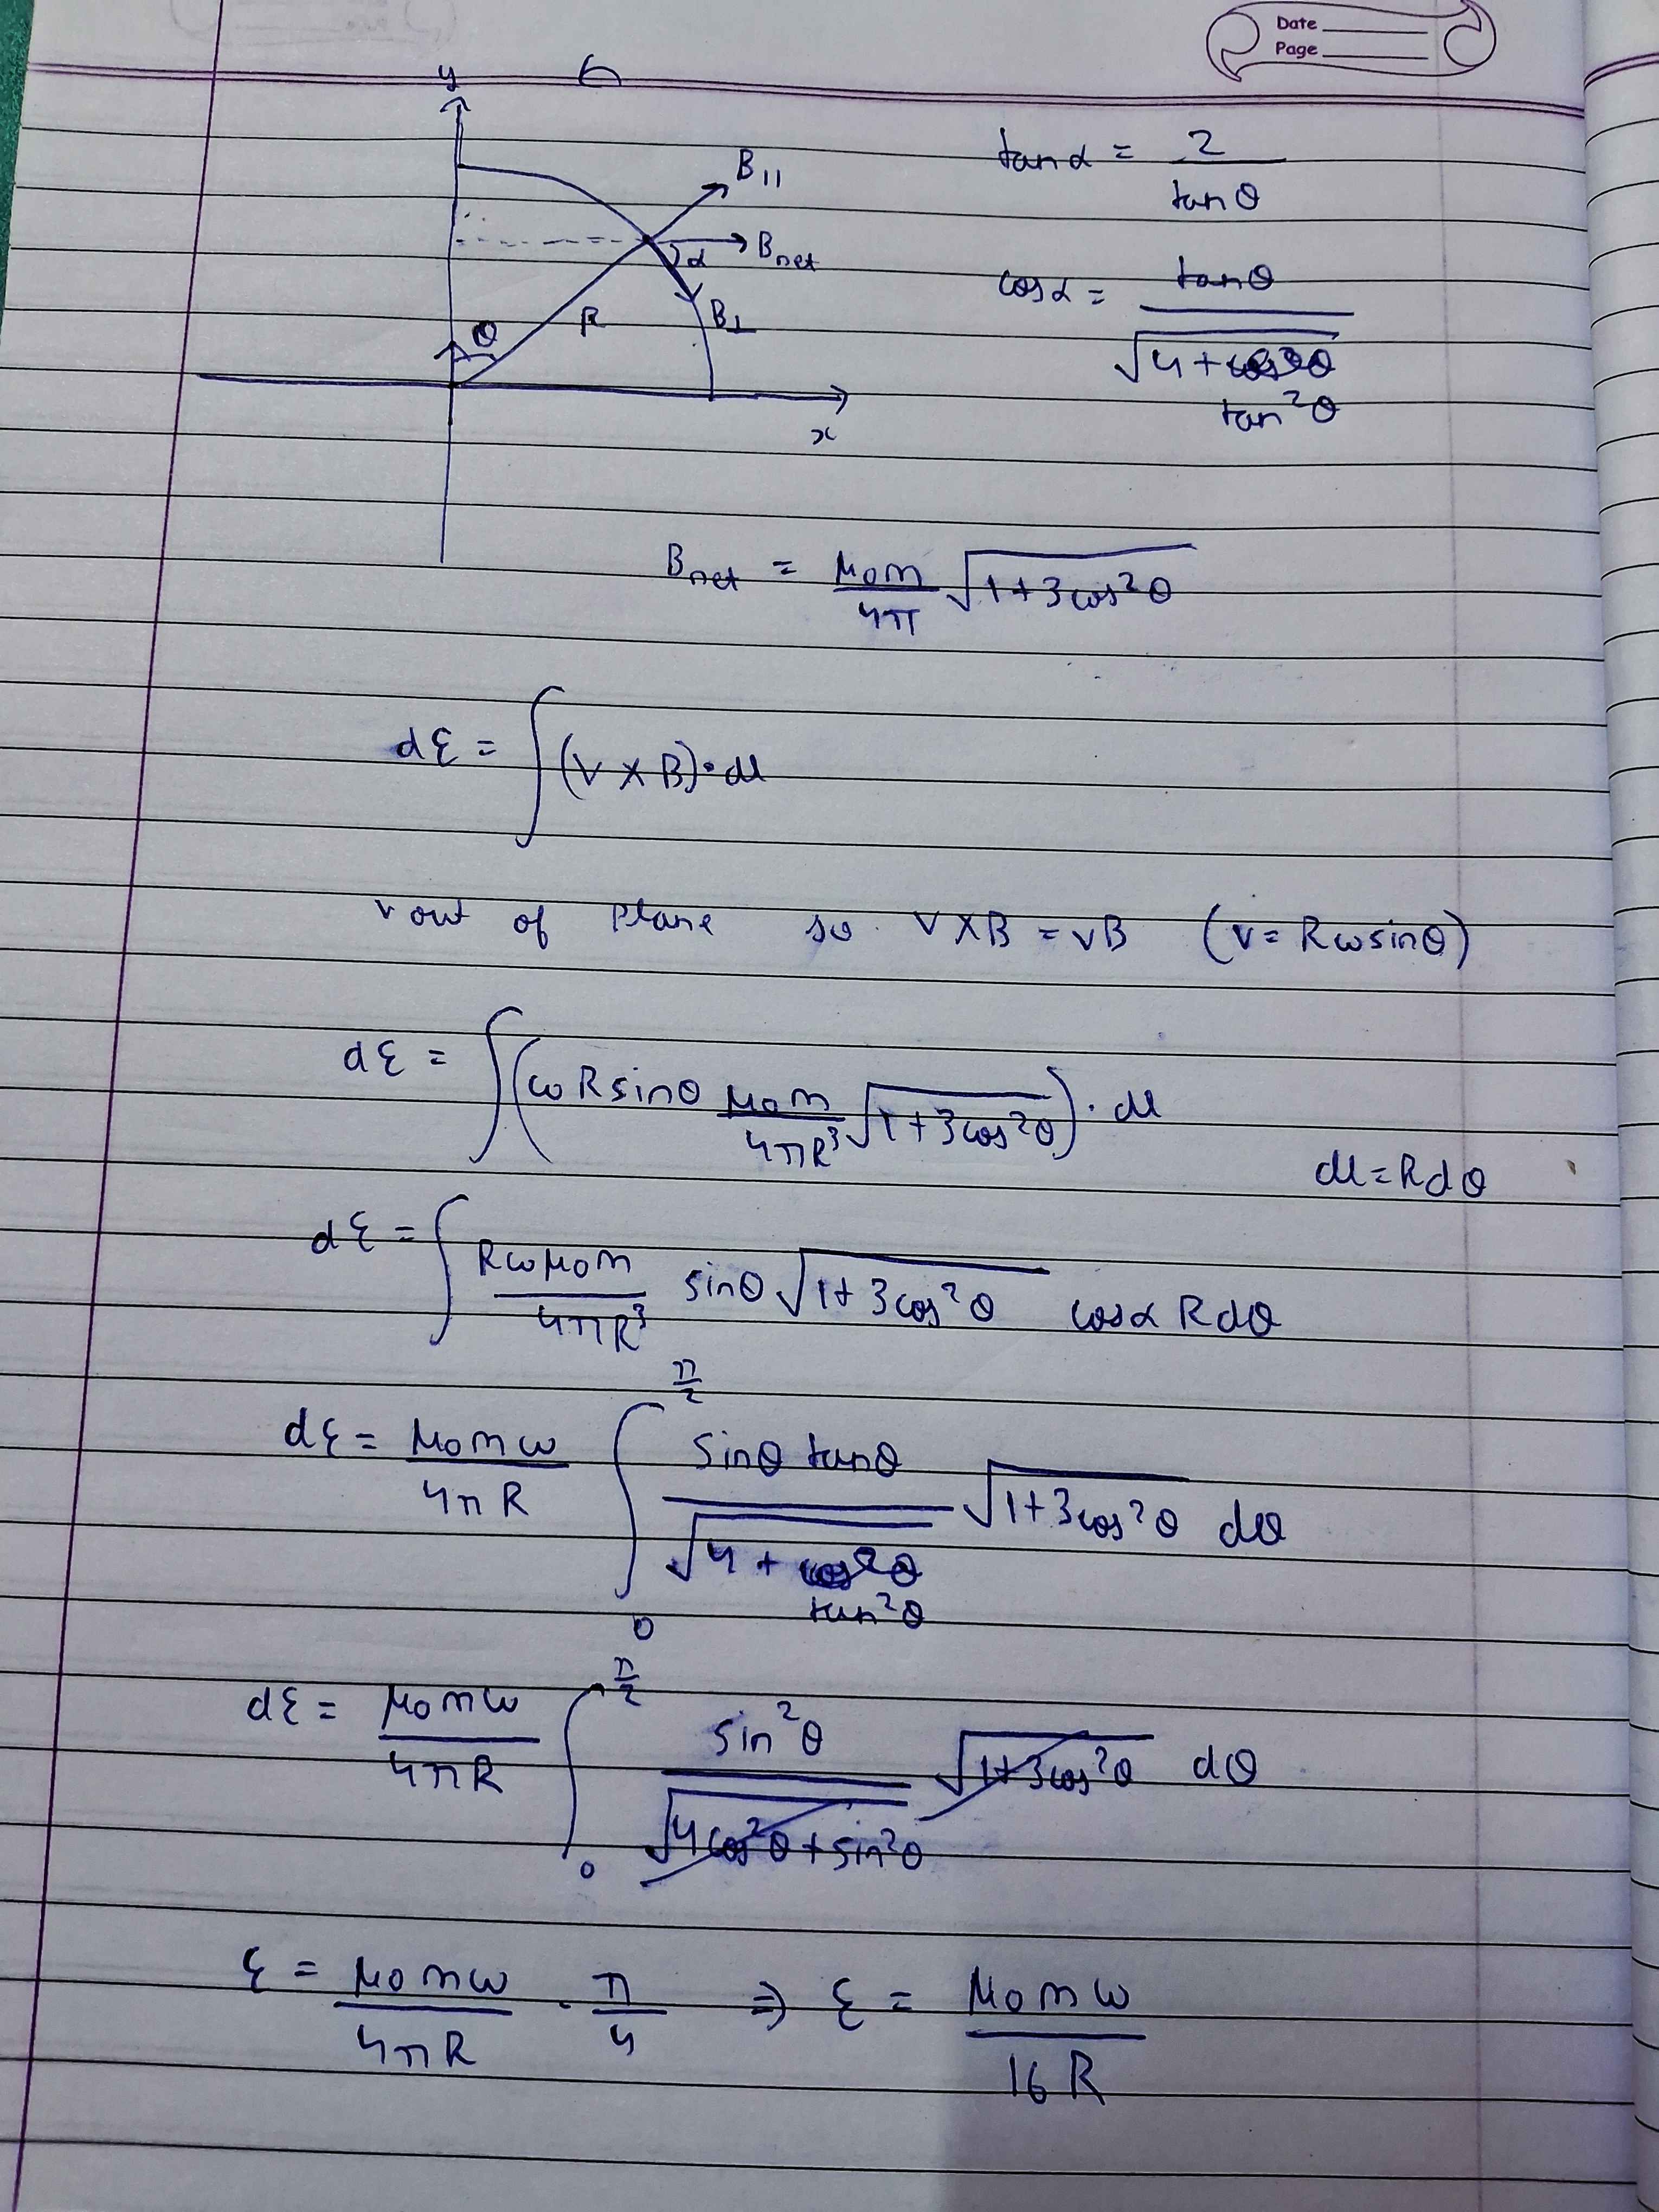 Date
Page
y
B∥
tanα = 2 / tanθ
Bnet
α
cosα = tanθ / √(4 + tan²θ)
B⊥
R
θ
x
Bnet = μ₀m / 4π √(1+3cos²θ)
dε = ∫(V × B)·dl
v out of plane so V×B = vB (v = Rωsinθ)
dε = ∫(ωRsinθ μ₀m / 4πR³ √(1+3cos²θ))·dl
dl = Rdθ
dε = ∫ Rωμ₀m / 4πR³ sinθ√(1+3cos²θ) cosα Rdθ
dε = μ₀mω / 4πR ∫₀^(π/2) sinθ tanθ / √(4 + tan²θ) √(1+3cos²θ) dθ
dε = μ₀mω / 4πR ∫₀^(π/2) sin²θ / √(4cos²θ + sin²θ) √(1+3cos²θ) dθ
ε = μ₀mω / 4πR · π / 4 ⇒ ε = μ₀mω / 16R